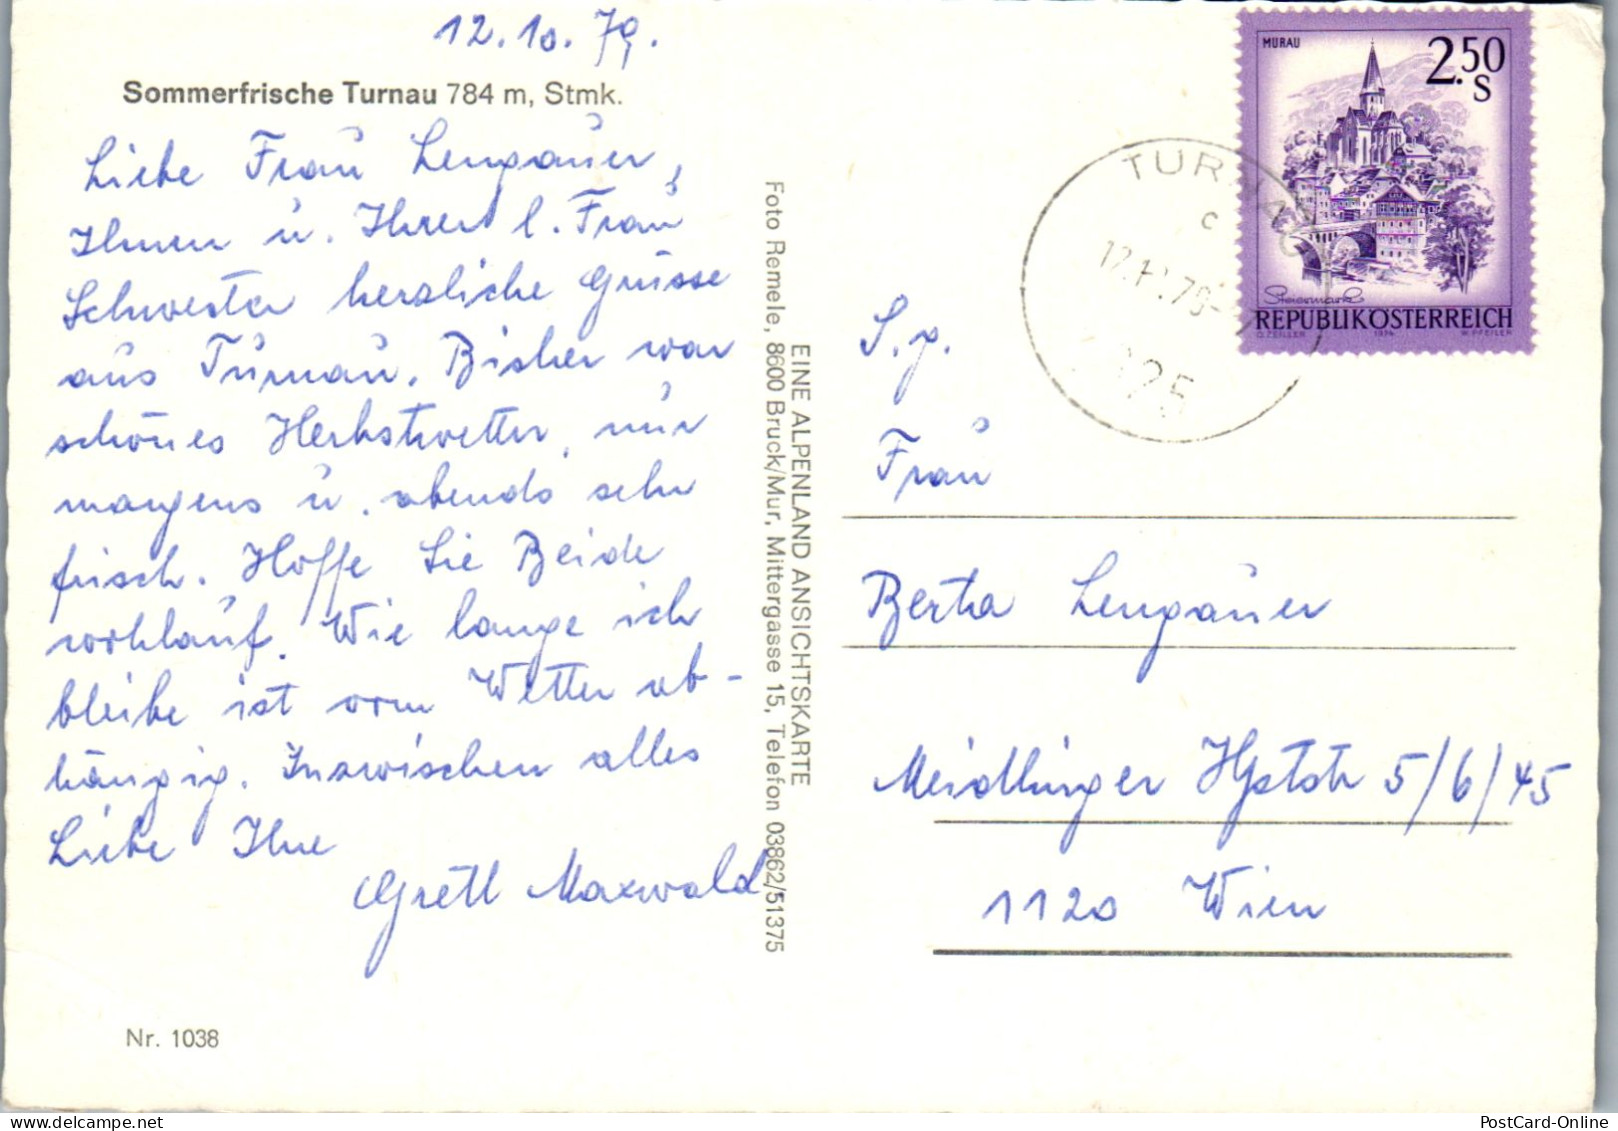 12.10.79.
Sommerfrische Turnau 784 m, Stmk.
Liebe Frau Lengauer,
Ihnen u. Ihrer l. Frau
Schwester herzliche Grüsse
aus Turnau. Bisher war
schönes Herbstwetter, nur
morgens u. abends sehr
frisch. Hoffe Sie Beide
wohlauf. Wie lange ich
bleibe ist vom Wetter ab-
hängig. Inzwischen alles
Liebe Ihre
Gretl Maxwald
Nr. 1038
EINE ALPENLAND ANSICHTSKARTE
Foto Remele, 8600 Bruck/Mur, Mittergasse 15, Telefon 03862/51375
MURAU
2.50
S
Steiermark
REPUBLIK ÖSTERREICH
O. ZEILLER 1974 W. PFEILER
TURNAU
c
S. g.
Frau
Berta Lengauer
Meidlinger Hptstr 5/6/45
1120 Wien
PostCard-Online